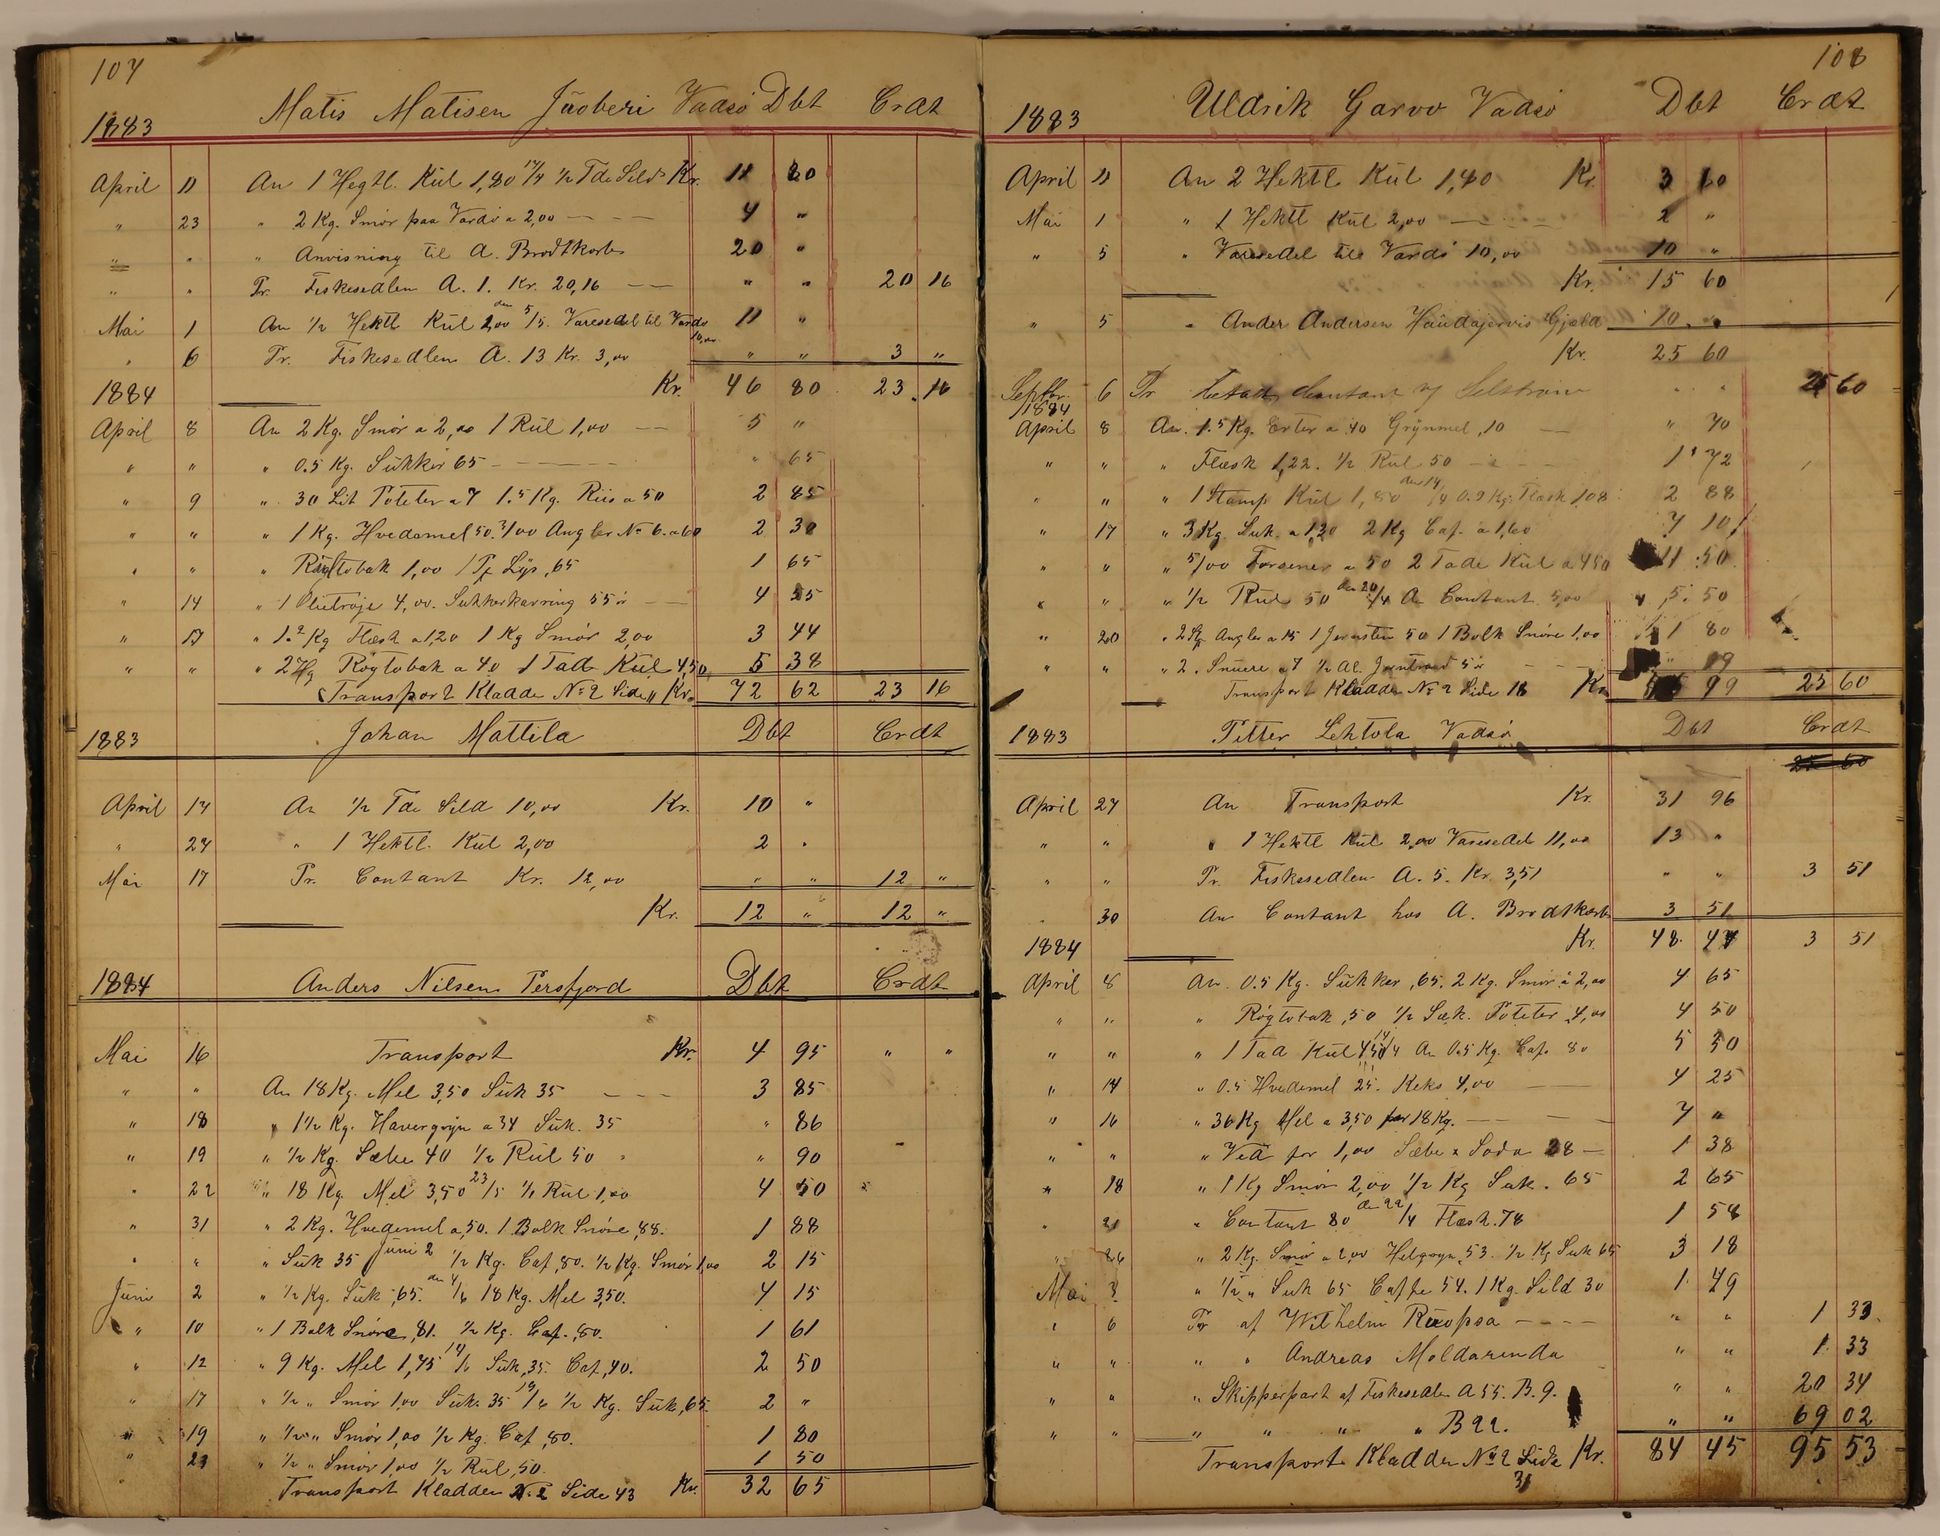 107
1883 Matis Matisen Juoberi Vadsö Dbt Crdt
April 11 An 1 Hegtl. Kul 1,80 17/4 1/2 Tde Sild Kr. 11 80
" 23 " 2 Kg. Smör paa Vardö a 2,00 4 "
" " " Anvisning til A. Brodtkorb 20 "
" " Pr. Fiskesedlen A. 1. Kr. 20,16 " " 20 16
Mai 1 An 1/2 Hektl Kul 2,00 den 5/5. Varesedel til Vardö 10,00 11 "
" 6 Pr. Fiskesedlen A. 13 Kr. 3,00 " " 3 "
1884 Kr. 46 80 23 16
April 8 An 2 Kg. Smör a 2,00 1 Rul 1,00 5 "
" " " 0.5 Kg. Sukker 65 " 65
" 9 " 30 Lit Poteter a 7 1.5 Kg. Riis a 50 2 85
" " " 1 Kg. Hvedemel 50. 3/00 Angler No 6. a 60 2 30
" " " Rögtobak 1,00 1 Pk Lys ,65 1 65
" 14 " 1 Olietröje 4,00. Sukkerkavring 55 ö 4 55
" 17 " 1.2 Kg Flæsk a 1,20 1 Kg Smör 2,00 3 44
" " " 2 Hg Rögtobak a 40 1 Tad Kul 4,50 5 38
Transport Kladde No 2 Side " Kr. 72 62 23 16
1883 Johan Mattila Dbt Crdt
April 14 An 1/2 Tde Sild 10,00 Kr. 10 "
" 24 " 1 Hektl. Kul 2,00 2 "
Mai 17 Pr. Contant Kr. 12,00 " " 12 "
Kr. 12 " 12 "
1884 Anders Nilsen Persfjord Dbt Crdt
Mai 16 Transport Kr. 4 95 " "
" " An 18 Kg. Mel 3,50 Suk 35 3 85
" 18 " 1 1/2 Kg. Havergryn a 34 Suk. 35 " 86
" 19 " 1/2 Kg. Sæbe 40 1/2 Rul 50 " 90
" 22 " 18 Kg. Mel 3,50 23/5 1/1 Rul 1,00 4 50
" 31 " 2 Kg. Hvedemel a ,50. 1 Bolk Snöre ,88. 1 88
" " " Suk 35 Juni 2 1/2 Kg. Caf ,80. 1/2 Kg. Smör 1,00 2 15
Juni 2 " 1/2 Kg. Suk ,65. den 4/6 18 Kg. Mel 3,50. 4 15
" 10 " 1 Bolk Snöre ,81. 1/2 Kg. Caf. ,80. 1 61
" 12 " 9 Kg. Mel 1,75 14/6 Suk ,35. Caf ,40. 2 50
" 17 " 1/2 " Smör 1,00 Suk. 35 19/6 1/2 Kg. Suk ,65. 2 "
" 19 " 1/2 " Smör 1,00 1/2 Kg. Caf ,80. 1 80
" 23 " 1/2 " Smör 1,00 1/2 Rul ,50. 1 50
Transport Kladden N. 2 Side 43 Kr. 32 65
108
1883 Uldrik Garvo Vadsö Dbt Crdt
April 11 An 2 Hektl Kul 1,80 Kr. 3 60
Mai 1 " 1 Hektl Kul 2,00 2 "
" 5 " Varesedel til Vardö 10,00 10 "
Kr. 15 60
" 5 " Ander Andersen Gjæld 10 "
Kr. 25 60
Septbr. 6 Pr Contant " " 25 60
1884
April 8 An. 1.5 Kg. Erter a 40 Grynmel ,10 " 70
" " " Flæsk 1,22. 1/2 Rul 50 1 72
" " " 1 Stamp Kul 1,80 den 14/4 0.9 Kg. Flæsk 1,08 2 88
" 17 " 3 Kg. Suk. a 1,30 2 Kg Caf. a 1,60 7 10
" " " 5/00 Forsener a 50 2 Tade Kul a 4,50 11 50
" " " 1/2 Rul 50 den 20/4 An Contant 5,00 5 50
" 20 " 2 St. Angler a 15 1 Jernsten 50 1 Bolk Snöre 1,00 1 80
" " " 2. Snuere a 7 1/2 Al. 5 ö " 19
Transport Kladden No 2 Side 18 Kr 99 25 60
1883 Pitter Lehtola Vadsö Dbt Crdt
25 60
April 27 An Transport Kr. 31 96
" " " 1 Hektl Kul 2,00 Varesedel 11,00 13 "
" " Pr. Fiskesedlen A. 5. Kr. 3,51 " " 3 51
" 30 An Contant hos A. Brodtkorb 3 51
1884 Kr. 48 47 3 51
April 8 An. 0.5 Kg. Sukker ,65. 2 Kg. Smör a 2,00 4 65
" " " Rögtobak ,50 1/2 Sæk. Poteter 4,00 4 50
" " " 1 Tad Kul 4,50 14/4 An 0.5 Kg. Caf. 80 5 30
" 14 " 0.5 Hvedemel 25. Keks 4,00 4 25
" 16 " 36 Kg Mel a 3,50 per 18 Kg. 7 "
" " " Ved for 1,00 Sæbe & Soda 38 1 38
" 18 " 1 Kg Smör 2,00 1/2 Kg Suk. 65 2 65
" 21 " Contant 80 den 22/4 Flæsk. 78 1 58
" 26 " 2 Kg. Smör a 2,00 Helgryn ,53. 1/2 Kg Suk 65 3 18
Mai 3 " 1/2 " Suk 65 Caffe 54. 1 Kg. Sild 30 1 49
" 6 Pr af Wilhelm Ruopsa " " 1 33
" " " " Andreas Moldarenda " " 1 33
" " " Skipperpart af Fiskesedlen A 55. B. 9. " " 20 34
" " " " " " B 22. " " 69 02
Transport Kladden No 2 Side 31 Kr. 84 45 95 53